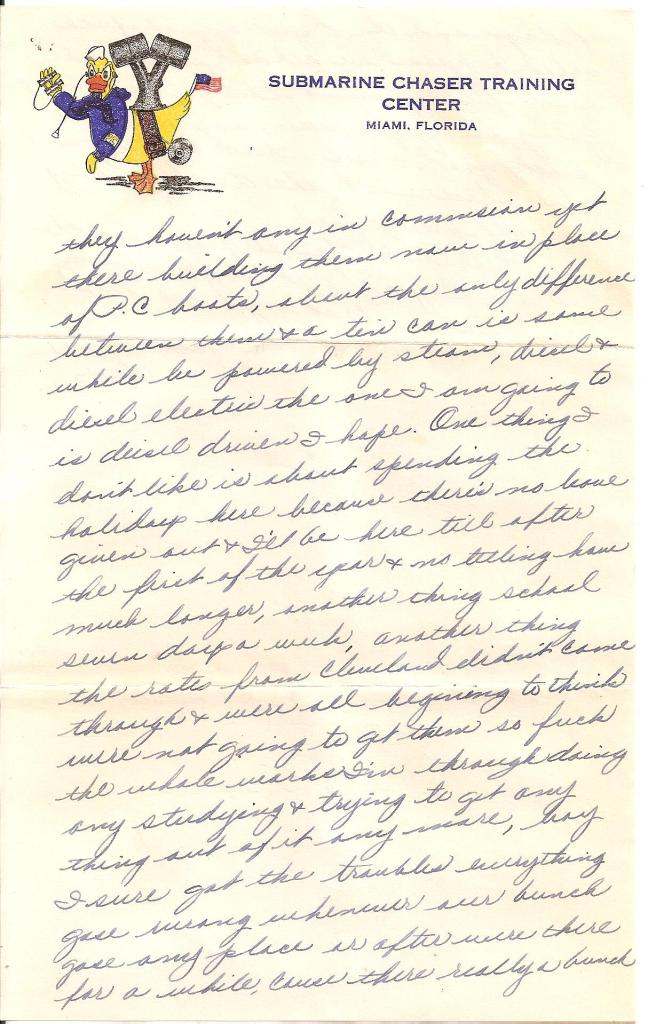 SUBMARINE CHASER TRAINING
CENTER
MIAMI, FLORIDA
they haven't any in commision yet
there building them now in place
of P.C boats, about the only difference
between them & a tin can is some
while be powered by steam, diesel &
diesel electric the one I am going to
is deisel driven I hope. One thing I
don't like is about spending the
holidays here because there's no leave
given out & I'll be here till after
the first of the year & no telling how
much longer, another thing school
seven days a week, another thing
the rates from Cleveland didn't come
through & were all begining to think
were not going to get them so fuck
the whole works I'm through doing
any studying & trying to get any
thing out of it any more, boy
I sure got the troubles everything
gose wrong whenever our bunch
gose any place or after were there
for a while, cause there really a bunch